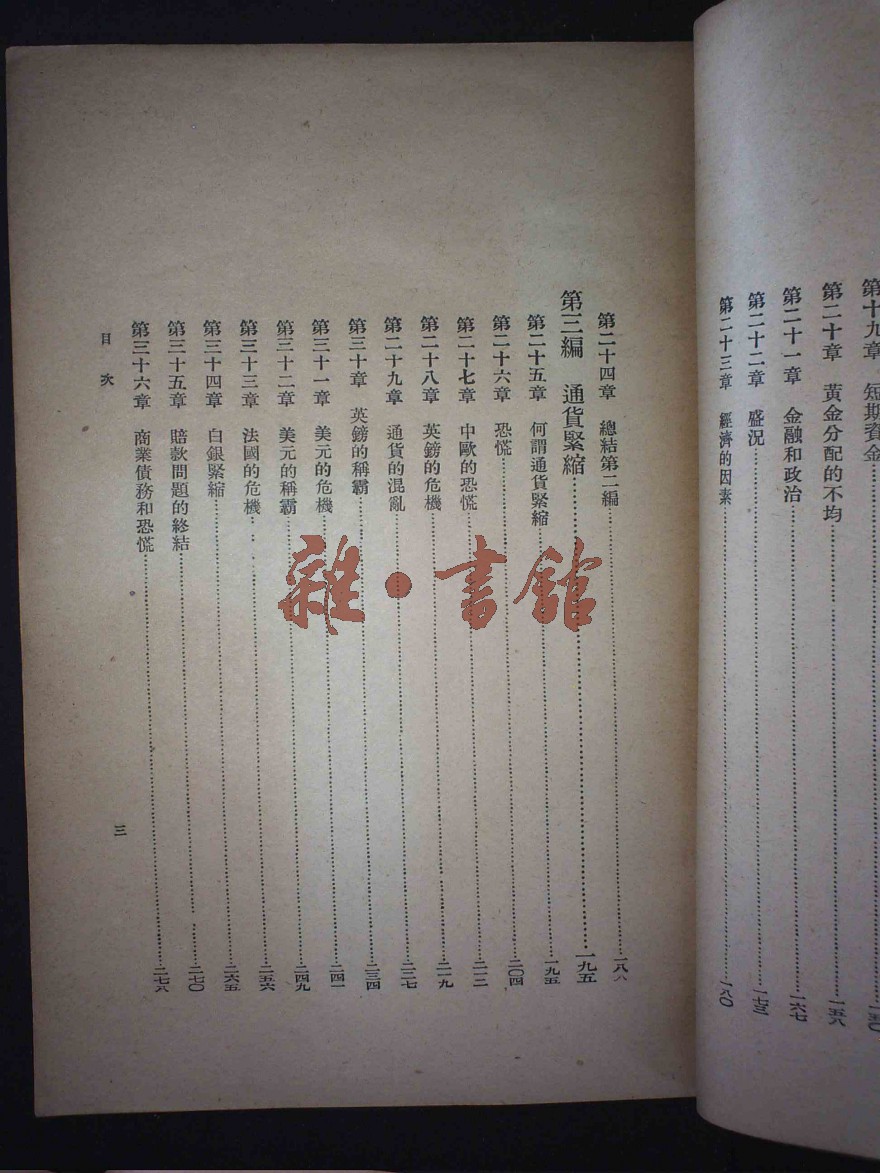 第十九章　短期資金……一五〇
第二十章　黃金分配的不均……一五八
第二十一章　金融和政治……一六七
第二十二章　盛況……一七三
第二十三章　經濟的因素……一八〇
第二十四章　總結第二編……一八八
第三編　通貨緊縮……一九五
第二十五章　何謂通貨緊縮……一九五
第二十六章　恐慌……二〇四
第二十七章　中歐的恐慌……二一二
第二十八章　英鎊的危機……二一九
第二十九章　通貨的混亂……二二七
第三十章　英鎊的稱霸……二三四
第三十一章　美元的危機……二四一
第三十二章　美元的稱霸……二四九
第三十三章　法國的危機……二五六
第三十四章　白銀緊縮……二六五
第三十五章　賠款問題的終結……二七〇
第三十六章　商業債務和恐慌……二七八
目次
三
雜·書館